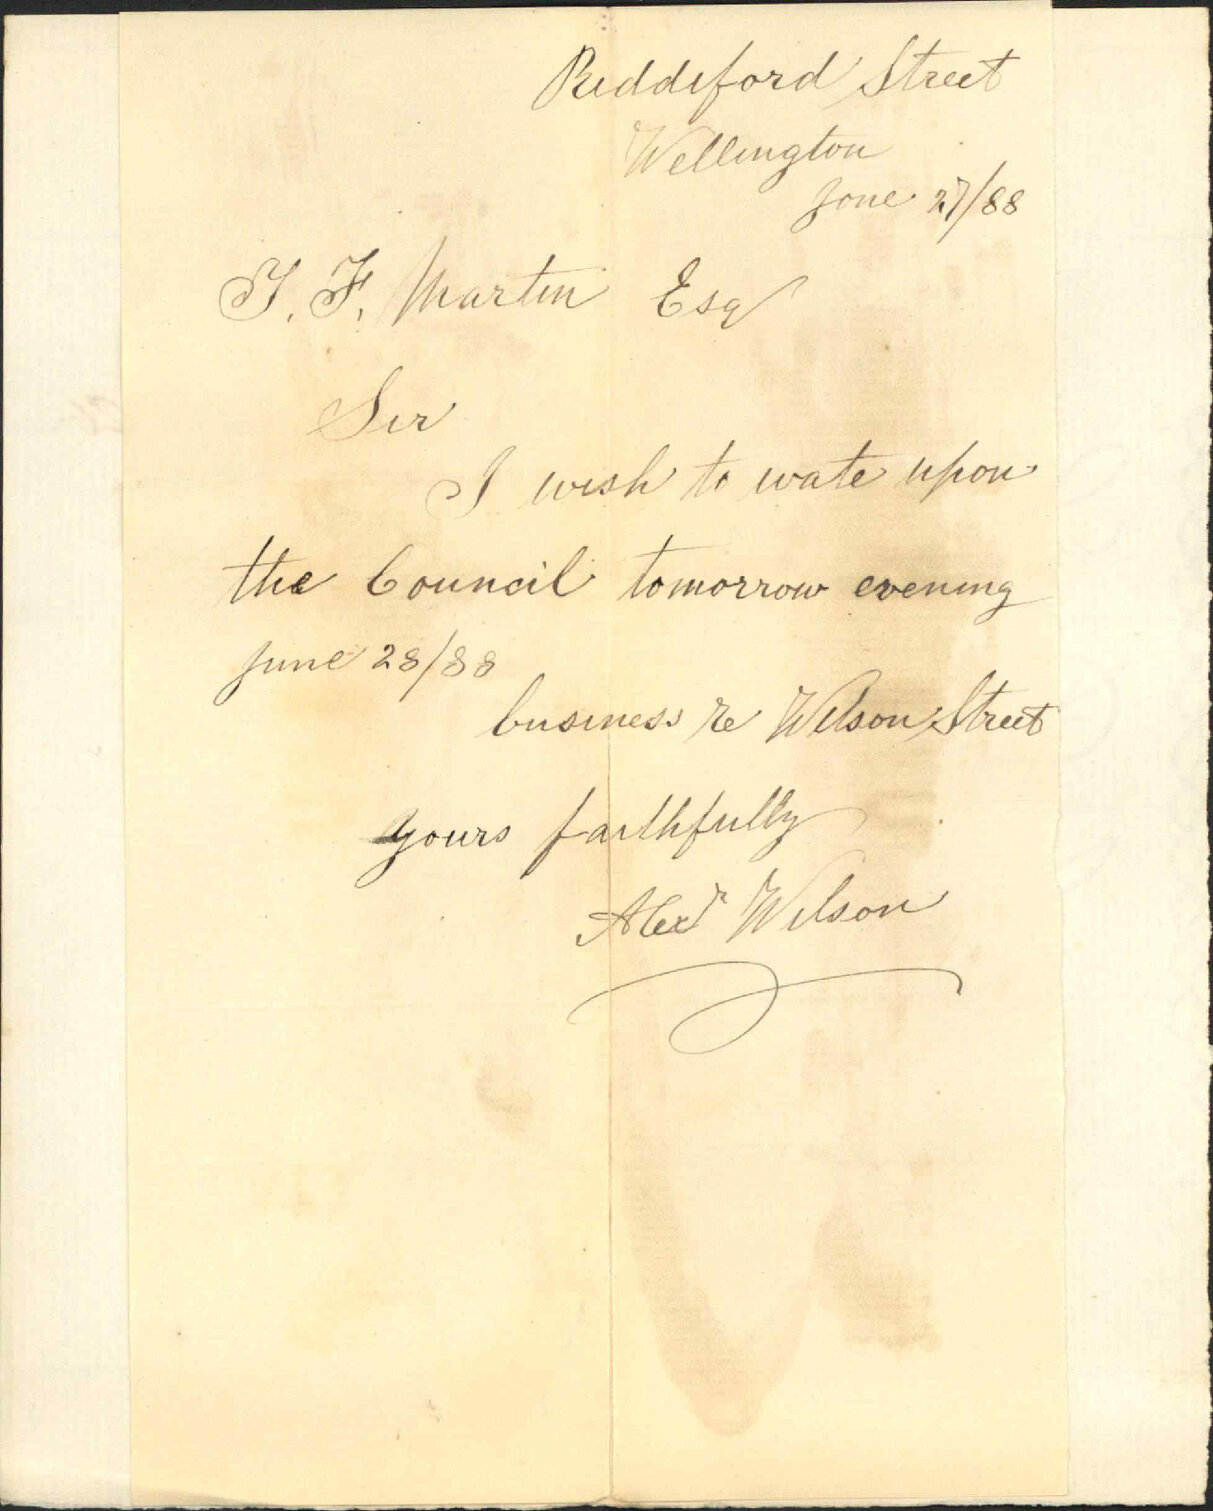 Riddiford Street
Wellington
June 27/88
T. F. Martin Esq
Sir
I wish to wate upon
the Council tomorrow evening
June 28/88
business re Wilson Street
yours faithfully
Alexr Wilson